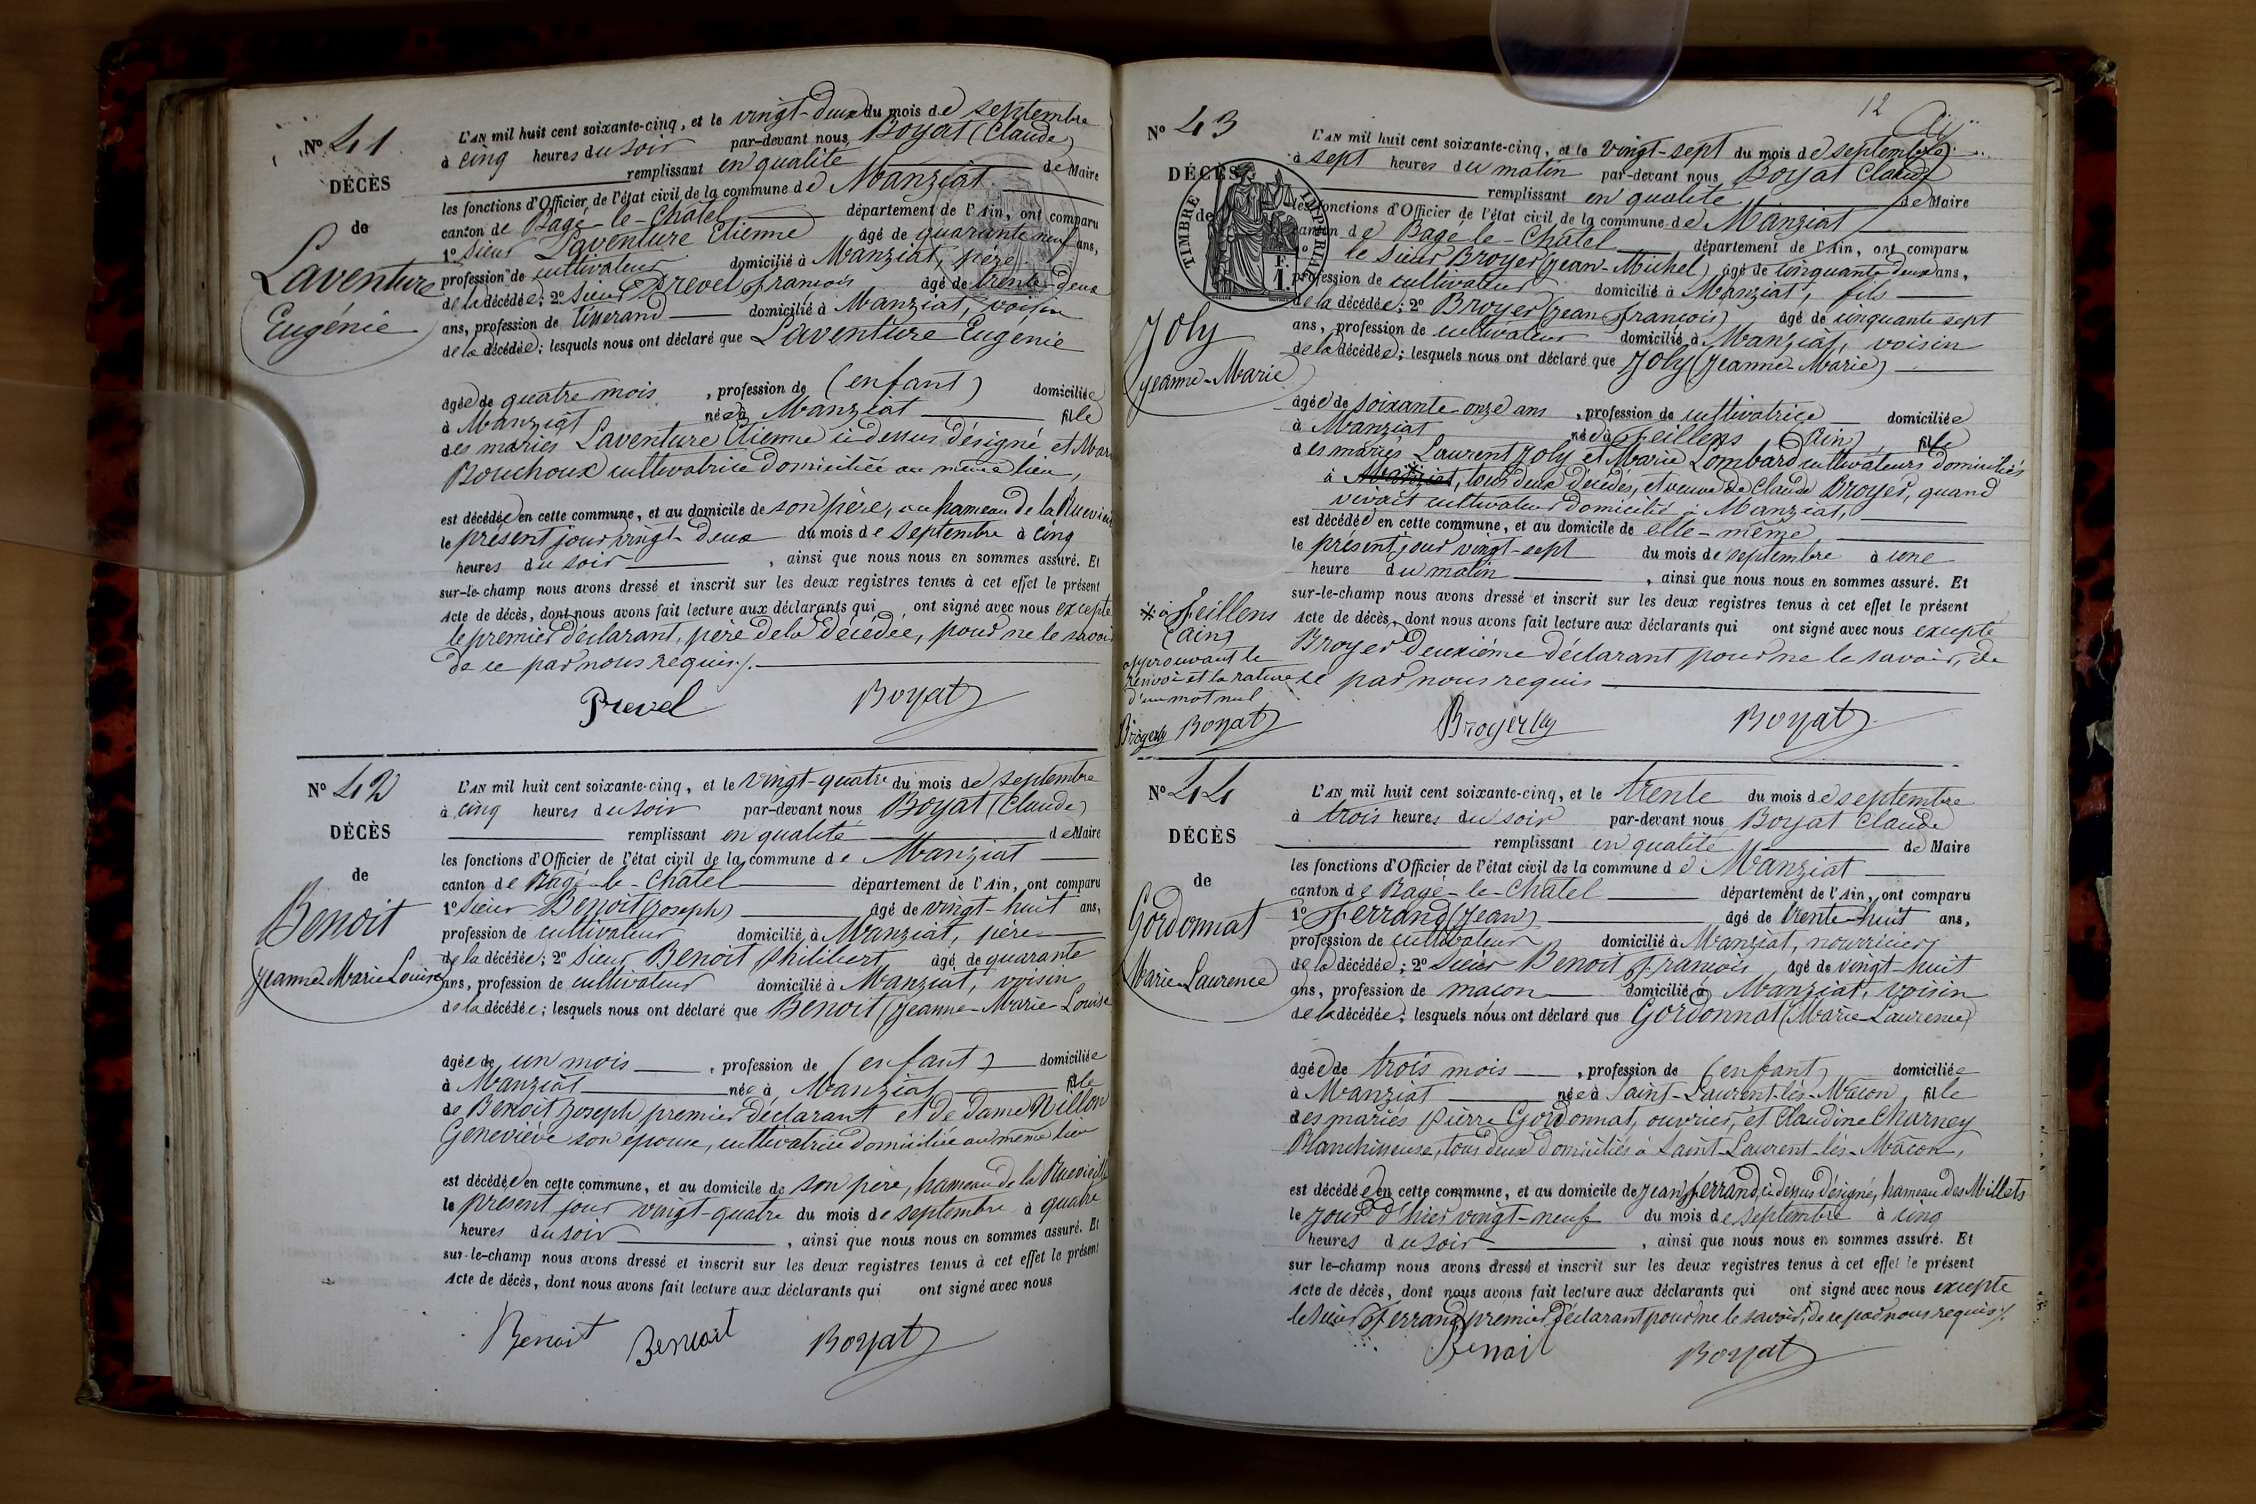 Nº 41
DÉCÈS
de
Laventure
Eugénie
L'AN mil huit cent soixante-cinq, et le vingt-deux du mois de septembre
à cinq heures du soir par-devant nous Boyat (Claude)
remplissant en qualité de Maire
les fonctions d'Officier de l'état civil de la commune de Manziat
canton de Bagé-le-Chatel département de l'Ain, ont comparu
1º sieur Laventure Etienne âgé de quarante neuf ans,
profession de cultivateur domicilié à Manziat, père
de la décédée; 2º sieur Prevel François âgé de trente-deux
ans, profession de tisserand domicilié à Manziat, voisin
de la décédée; lesquels nous ont déclaré que Laventure Eugénie
âgée de quatre mois, profession de (enfant) domiciliée
à Manziat née à Manziat fille
des mariés Laventure Etienne ci dessus désigné et Mar
Bouchoux cultivatrice domiciliée au même lieu,
est décédée en cette commune, et au domicile de son père, au hameau de la Ruevieille
le présent jour vingt-deux du mois de septembre à cinq
heures du soir, ainsi que nous nous en sommes assuré. Et
sur-le-champ nous avons dressé et inscrit sur les deux registres tenus à cet effet le présent
Acte de décès, dont nous avons fait lecture aux déclarants qui ont signé avec nous excepté
le premier déclarant, père de la décédée, pour ne le savoir
de ce par nous requis.
Prevel Boyat
Nº 42
DÉCÈS
de
Benoit
Jeanne-Marie Louise
L'AN mil huit cent soixante-cinq, et le vingt-quatre du mois de septembre
à cinq heures du soir par-devant nous Boyat (Claude)
remplissant en qualité de Maire
les fonctions d'Officier de l'état civil de la commune de Manziat
canton de Bagé-le-Chatel département de l'Ain, ont comparu
1º sieur Benoit (Joseph) âgé de vingt-huit ans,
profession de cultivateur domicilié à Manziat, père
de la décédée; 2º sieur Benoit Philibert âgé de quarante
ans, profession de cultivateur domicilié à Manziat, voisin
de la décédée; lesquels nous ont déclaré que Benoit (Jeanne-Marie-Louise
âgée de un mois, profession de (enfant) domiciliée
à Manziat née à Manziat fille
de Benoit Joseph premier déclarant et de dame Nillon
Geneviève son épouse, cultivatrice domiciliée au même lieu
est décédée en cette commune, et au domicile de son père, hameau de la Ruevieille
le présent jour vingt-quatre du mois de septembre à quatre
heures du soir, ainsi que nous nous en sommes assuré. Et
sur-le-champ nous avons dressé et inscrit sur les deux registres tenus à cet effet le présent
Acte de décès, dont nous avons fait lecture aux déclarants qui ont signé avec nous
Benoit Benoit Boyat
12
Nº 43
DÉCÈS
de
TIMBRE IMPERIAL
1 F.
Joly
Jeanne-Marie
L'AN mil huit cent soixante-cinq, et le vingt-sept du mois de septembre
à sept heures du matin par-devant nous Boyat Claude
remplissant en qualité de Maire
les fonctions d'Officier de l'état civil de la commune de Manziat
canton de Bagé-le-Chatel département de l'Ain, ont comparu
1º le sieur Broyer (Jean-Michel) âgé de cinquante-deux ans,
profession de cultivateur domicilié à Manziat, fils
de la décédée; 2º Broyer (Jean François) âgé de cinquante sept
ans, profession de cultivateur domicilié à Manziat, voisin
de la décédée; lesquels nous ont déclaré que Joly (Jeanne-Marie)
âgée de soixante onze ans, profession de cultivatrice domiciliée
à Manziat née à Feillens (Ain), fille
des mariés Laurent Joly et Marie Lombard cultivateurs domiciliés
à Manziat, tous deux décédés, et veuve de Claude Broyer, quand
vivait cultivateur domicilié à Manziat,
est décédée en cette commune, et au domicile de elle-même
le présent jour vingt-sept du mois de septembre à une
heure du matin, ainsi que nous nous en sommes assuré. Et
sur-le-champ nous avons dressé et inscrit sur les deux registres tenus à cet effet le présent
Acte de décès, dont nous avons fait lecture aux déclarants qui ont signé avec nous excepté
Broyer deuxième déclarant pour ne le savoir, de
ce par nous requis
* à Feillens
(Ain)
approuvant le
renvoi et la rature
d'un mot nul
Broyer Boyat
Broyer Boyat
Nº 44
DÉCÈS
de
Gordonnat
Marie-Laurence
L'AN mil huit cent soixante-cinq, et le trente du mois de septembre
à trois heures du soir par-devant nous Boyat Claude
remplissant en qualité de Maire
les fonctions d'Officier de l'état civil de la commune de Manziat
canton de Bagé-le-Chatel département de l'Ain, ont comparu
1º Ferrand (Jean) âgé de trente-huit ans,
profession de cultivateur domicilié à Manziat, nourricier
de la décédée; 2º sieur Benoit François, âgé de vingt-huit
ans, profession de maçon domicilié à Manziat, voisin
de la décédée; lesquels nous ont déclaré que Gordonnat (Marie-Laurence)
âgée de trois mois, profession de (enfant) domiciliée
à Manziat née à Saint-Laurent-lès-Macon, fille
des mariés Pierre Gordonnat, ouvrier, et Claudine Charney
Blanchisseuse, tous deux domiciliés à Saint-Laurent-lès-Mâcon,
est décédée en cette commune, et au domicile de Jean Ferrand, ci dessus désigné, hameau des Millets
le jour d'hier vingt-neuf du mois de septembre à cinq
heures du soir, ainsi que nous nous en sommes assuré. Et
sur le-champ nous avons dressé et inscrit sur les deux registres tenus à cet effet le présent
Acte de décès, dont nous avons fait lecture aux déclarants qui ont signé avec nous excepté
le sieur Ferrand, premier déclarant pour ne le savoir, de ce par nous requis.
Benoit Boyat